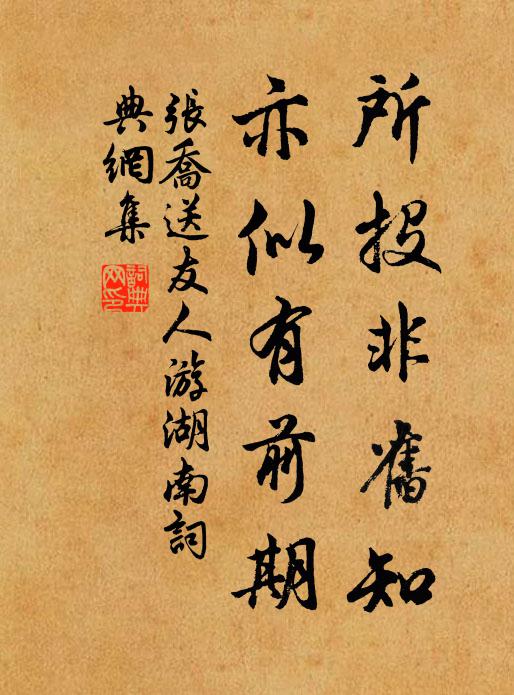 所投非舊知
亦似有前期
張喬送友人游湖南詞
典網集
詞典
网印